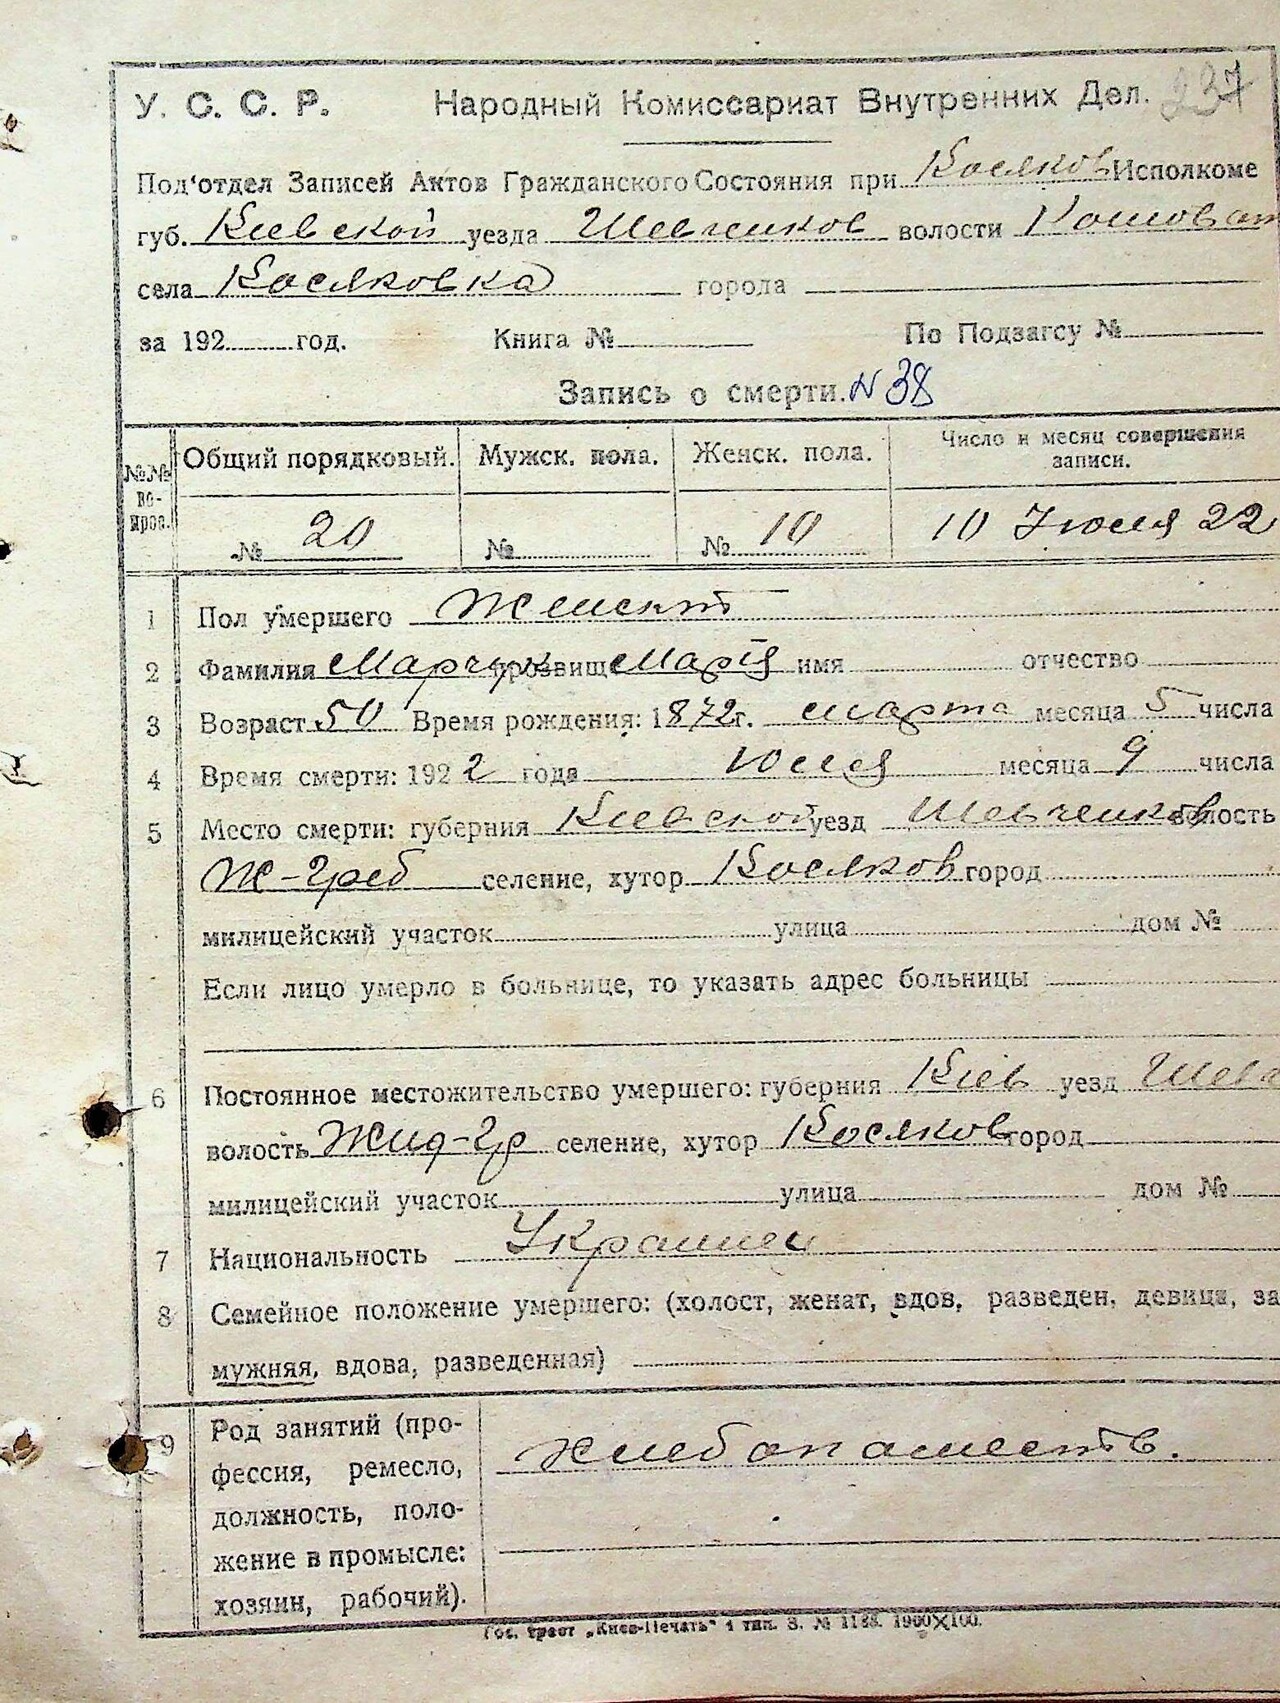 У. С. С. Р. Народный Комиссариат Внутренних Дел. 237
Под'отдел Записей Актов Гражданского Состояния при Косяков Исполкоме
губ. Киевской уезда Шевченков волости
села Косяковка города
за 192 год. Книга № По Подзагсу №
Запись о смерти. № 38
№№ во-прос. Общий порядковый. Мужск. пола. Женск. пола. Число и месяц совершения записи.
№ 20 № № 10 10 Июля 22
1 Пол умершего Женский
2 Фамилия Марчук прозвище Марія имя отчество
3 Возраст 50 Время рождения: 1872 г. марта месяца 5 числа
4 Время смерти: 1922 года Июля месяца 9 числа
5 Место смерти: губерния Киевской уезд Шевченков волость
Ж-Греб селение, хутор Косяков город
милицейский участок улица дом №
Если лицо умерло в больнице, то указать адрес больницы
6 Постоянное местожительство умершего: губерния Киев уезд Шевч
волость Жид-Гр селение, хутор Косяков город
милицейский участок улица дом №
7 Национальность Украинец
8 Семейное положение умершего: (холост, женат, вдов, разведен, девица, за
мужняя, вдова, разведенная)
9 Род занятий (про-
фессия, ремесло, хлебопашеств.
должность, поло-
жение в промысле:
хозяин, рабочий).
Гос. трест „Киев-Печать“ 1 тип. З. № 1188. 1900X100.